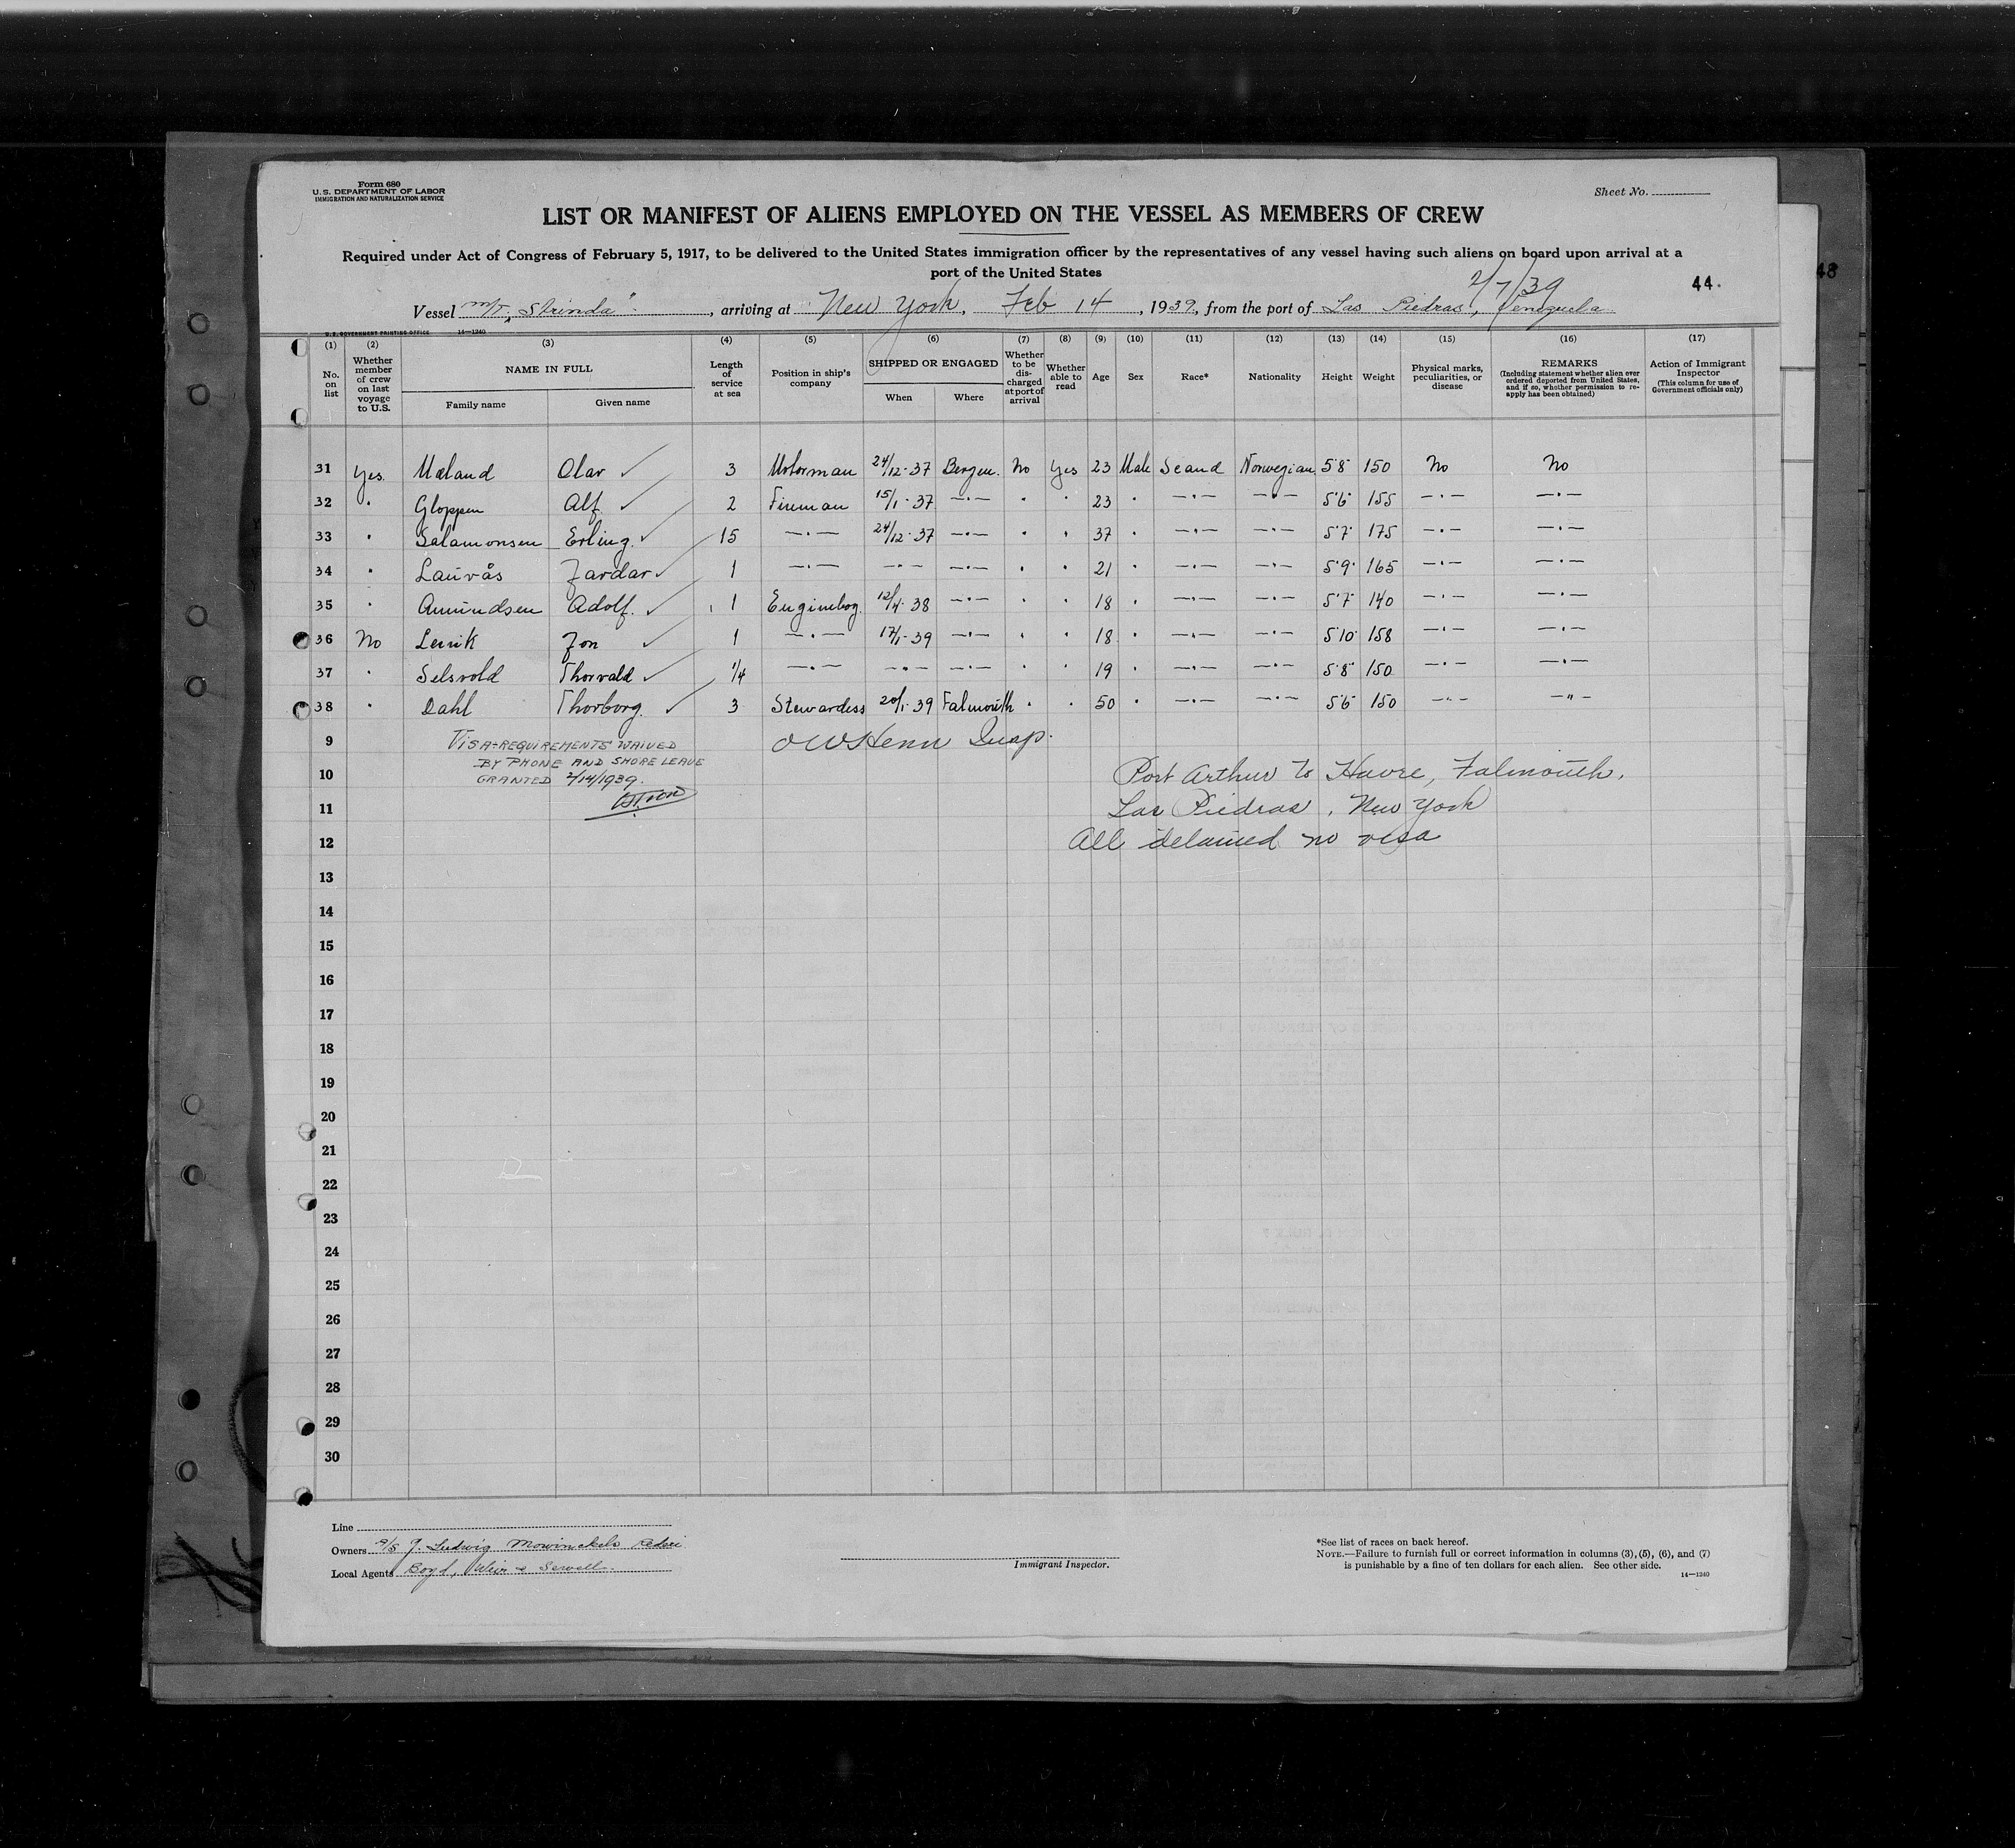 Form 680
U.S. DEPARTMENT OF LABOR
IMMIGRATION AND NATURALIZATION SERVICE
Sheet No.
LIST OR MANIFEST OF ALIENS EMPLOYED ON THE VESSEL AS MEMBERS OF CREW
Required under Act of Congress of February 5, 1917, to be delivered to the United States immigration officer by the representatives of any vessel having such aliens on board upon arrival at a
port of the United States
2/7/39
44.
48
Vessel M/T „Strinda", arriving at New York, Feb 14, 1939, from the port of Las Piedras, Venezuela
U.S. GOVERNMENT PRINTING OFFICE 14—1240
(1) No. on list
(2) Whether member of crew on last voyage to U.S.
(3) NAME IN FULL Family name Given name
(4) Length of service at sea
(5) Position in ship's company
(6) SHIPPED OR ENGAGED When Where
(7) Whether to be discharged at port of arrival
(8) Whether able to read
(9) Age
(10) Sex
(11) Race*
(12) Nationality
(13) Height
(14) Weight
(15) Physical marks, peculiarities, or disease
(16) REMARKS (Including statement whether alien ever ordered deported from United States, and if so, whether permission to reapply has been obtained)
(17) Action of Immigrant Inspector (This column for use of Government officials only)
31 Yes Mæland Olav ✓ 3 Motorman 24/12-37 Bergen. No Yes 23 Male Scand Norwegian 5'8" 150 No No
32 " Gloppen Alf. ✓ 2 Fireman 15/1-37 —"— " " 23 " —"— —"— 5'6" 155 —"— —"—
33 " Salamonsen Erling. ✓ 15 —"— 24/12-37 —"— " " 37 " —"— —"— 5'7" 175 —"— —"—
34 " Lauvås Jardar ✓ 1 —"— —"— —"— " " 21 " —"— —"— 5'9" 165 —"— —"—
35 " Amundsen Adolf. ✓ 1 Engineboy. 12/4-38 —"— " " 18 " —"— —"— 5'7" 140 —"— —"—
36 No Jon ✓ 1 —"— 17/1-39 —"— " " 18 " —"— —"— 5'10" 158 —"— —"—
37 " Selsvold Thorvald ✓ 1/4 —"— —"— —"— " " 19 " —"— —"— 5'8" 150 —"— —"—
38 " Dahl Thorborg. ✓ 3 Stewardess 20/1-39 Falmouth " " 50 " —"— —"— 5'6" 150 —"— —"—
9 VISA-REQUIREMENTS WAIVED
BY PHONE AND SHORE LEAVE
GRANTED 2/14/1939.
Insp.
10 Port Arthur to Havre, Falmouth,
11 Las Piedras, New York
12 All detained no visa
13
14
15
16
17
18
19
20
21
22
23
24
25
26
27
28
29
30
Line
Owners A/S J. Ludwig Mowinckels Rederi
Local Agents Boyd, Weir & Sewell
Immigrant Inspector.
*See list of races on back hereof.
NOTE.—Failure to furnish full or correct information in columns (3), (5), (6), and (7)
is punishable by a fine of ten dollars for each alien. See other side.
14—1240